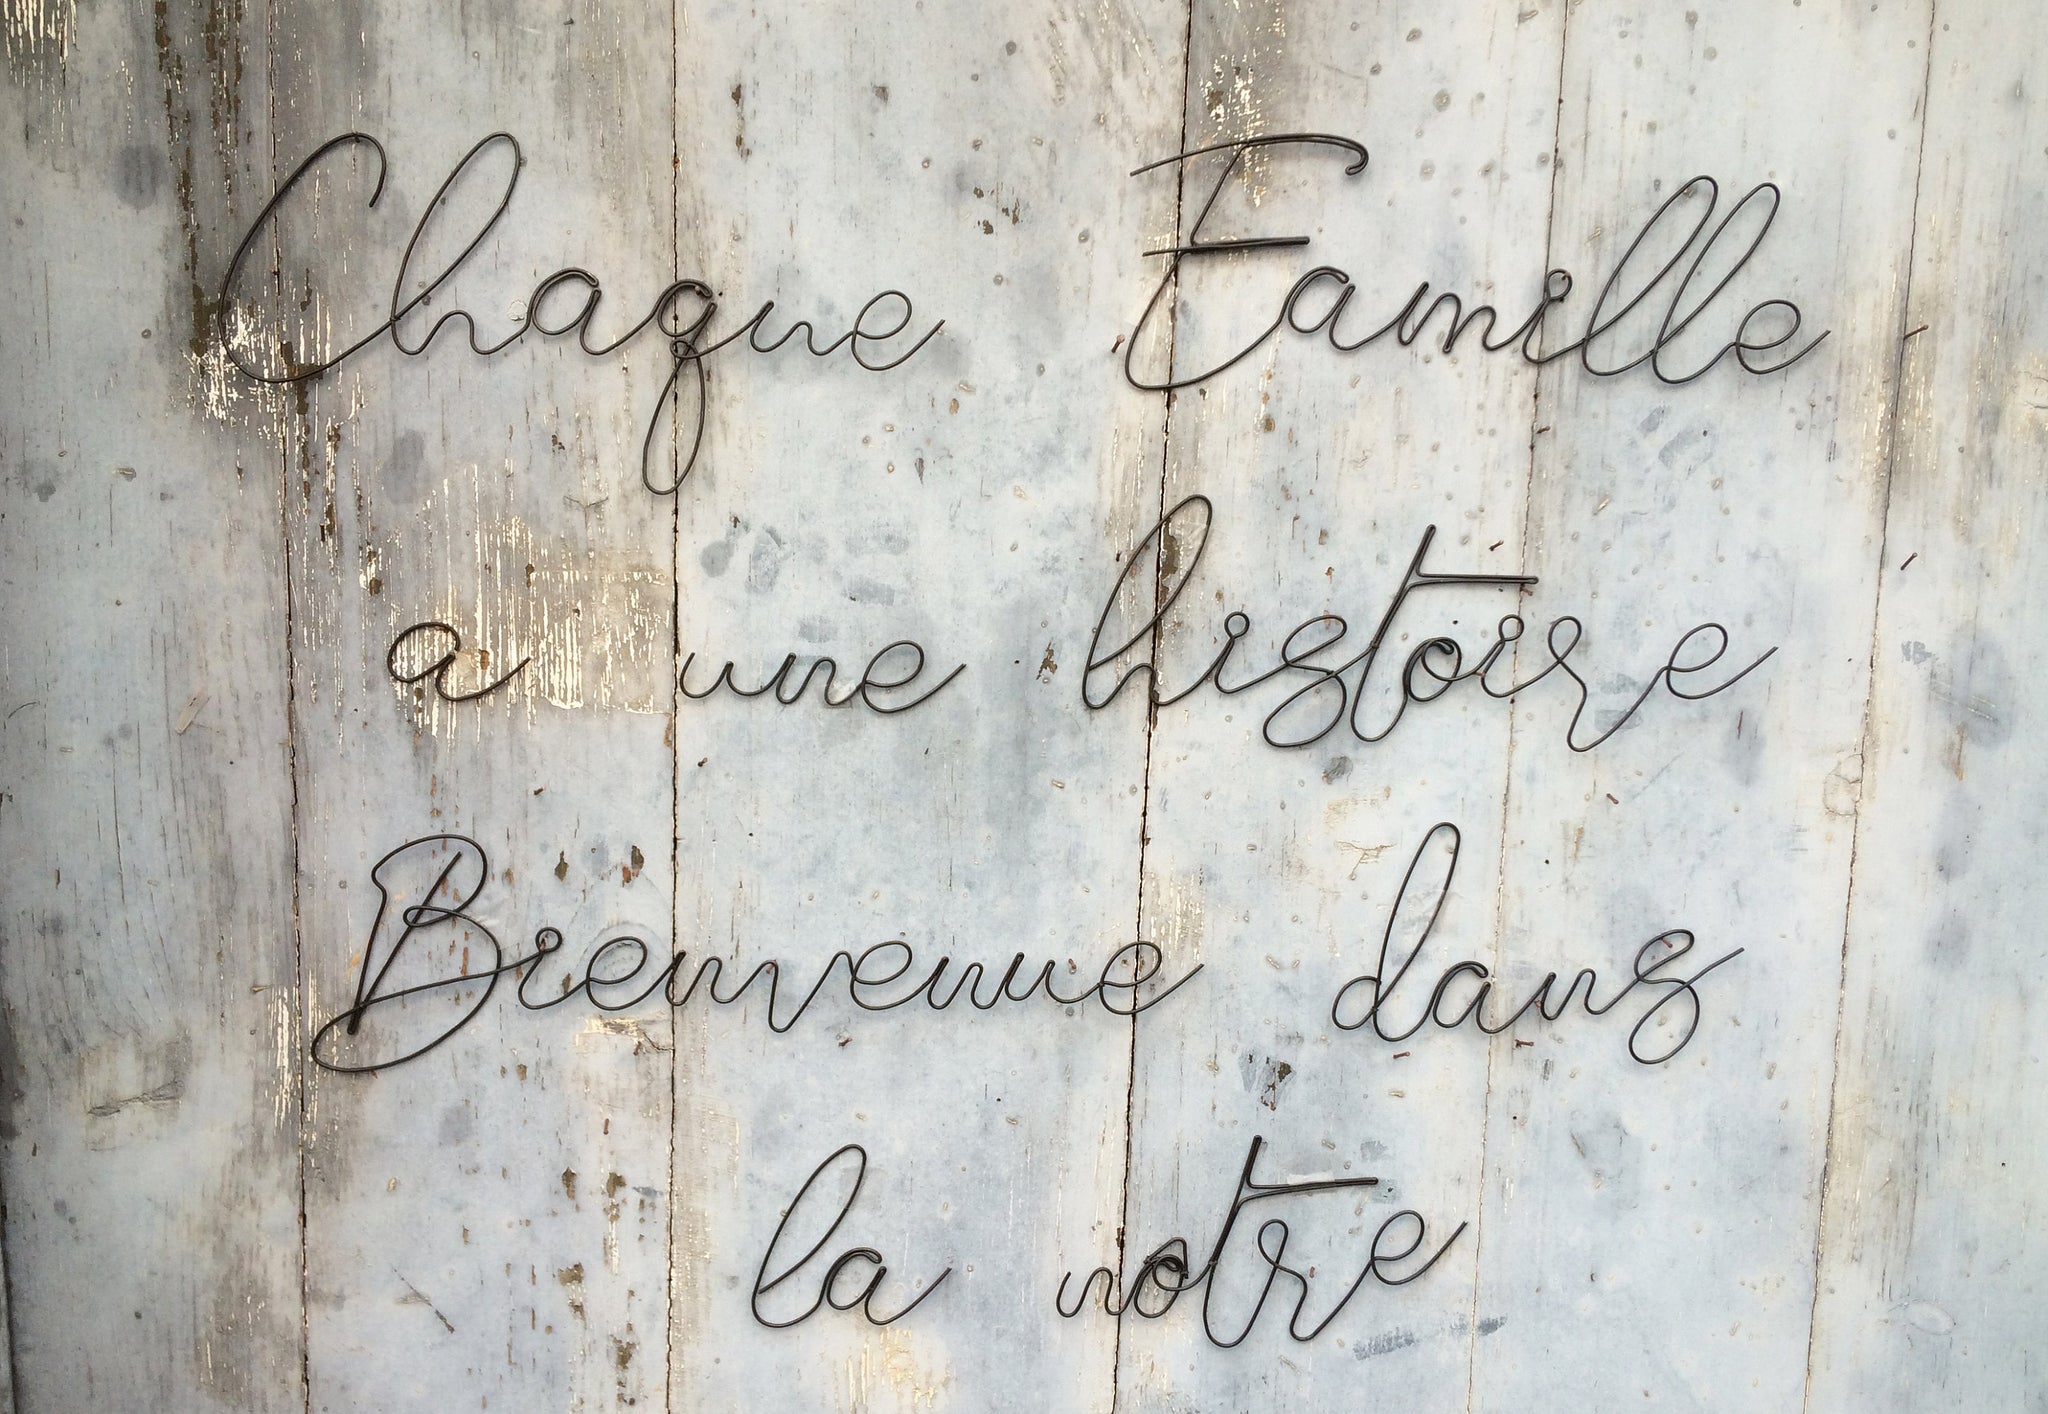 Chaque Famille
a une histoire
Bienvenue dans
la nôtre